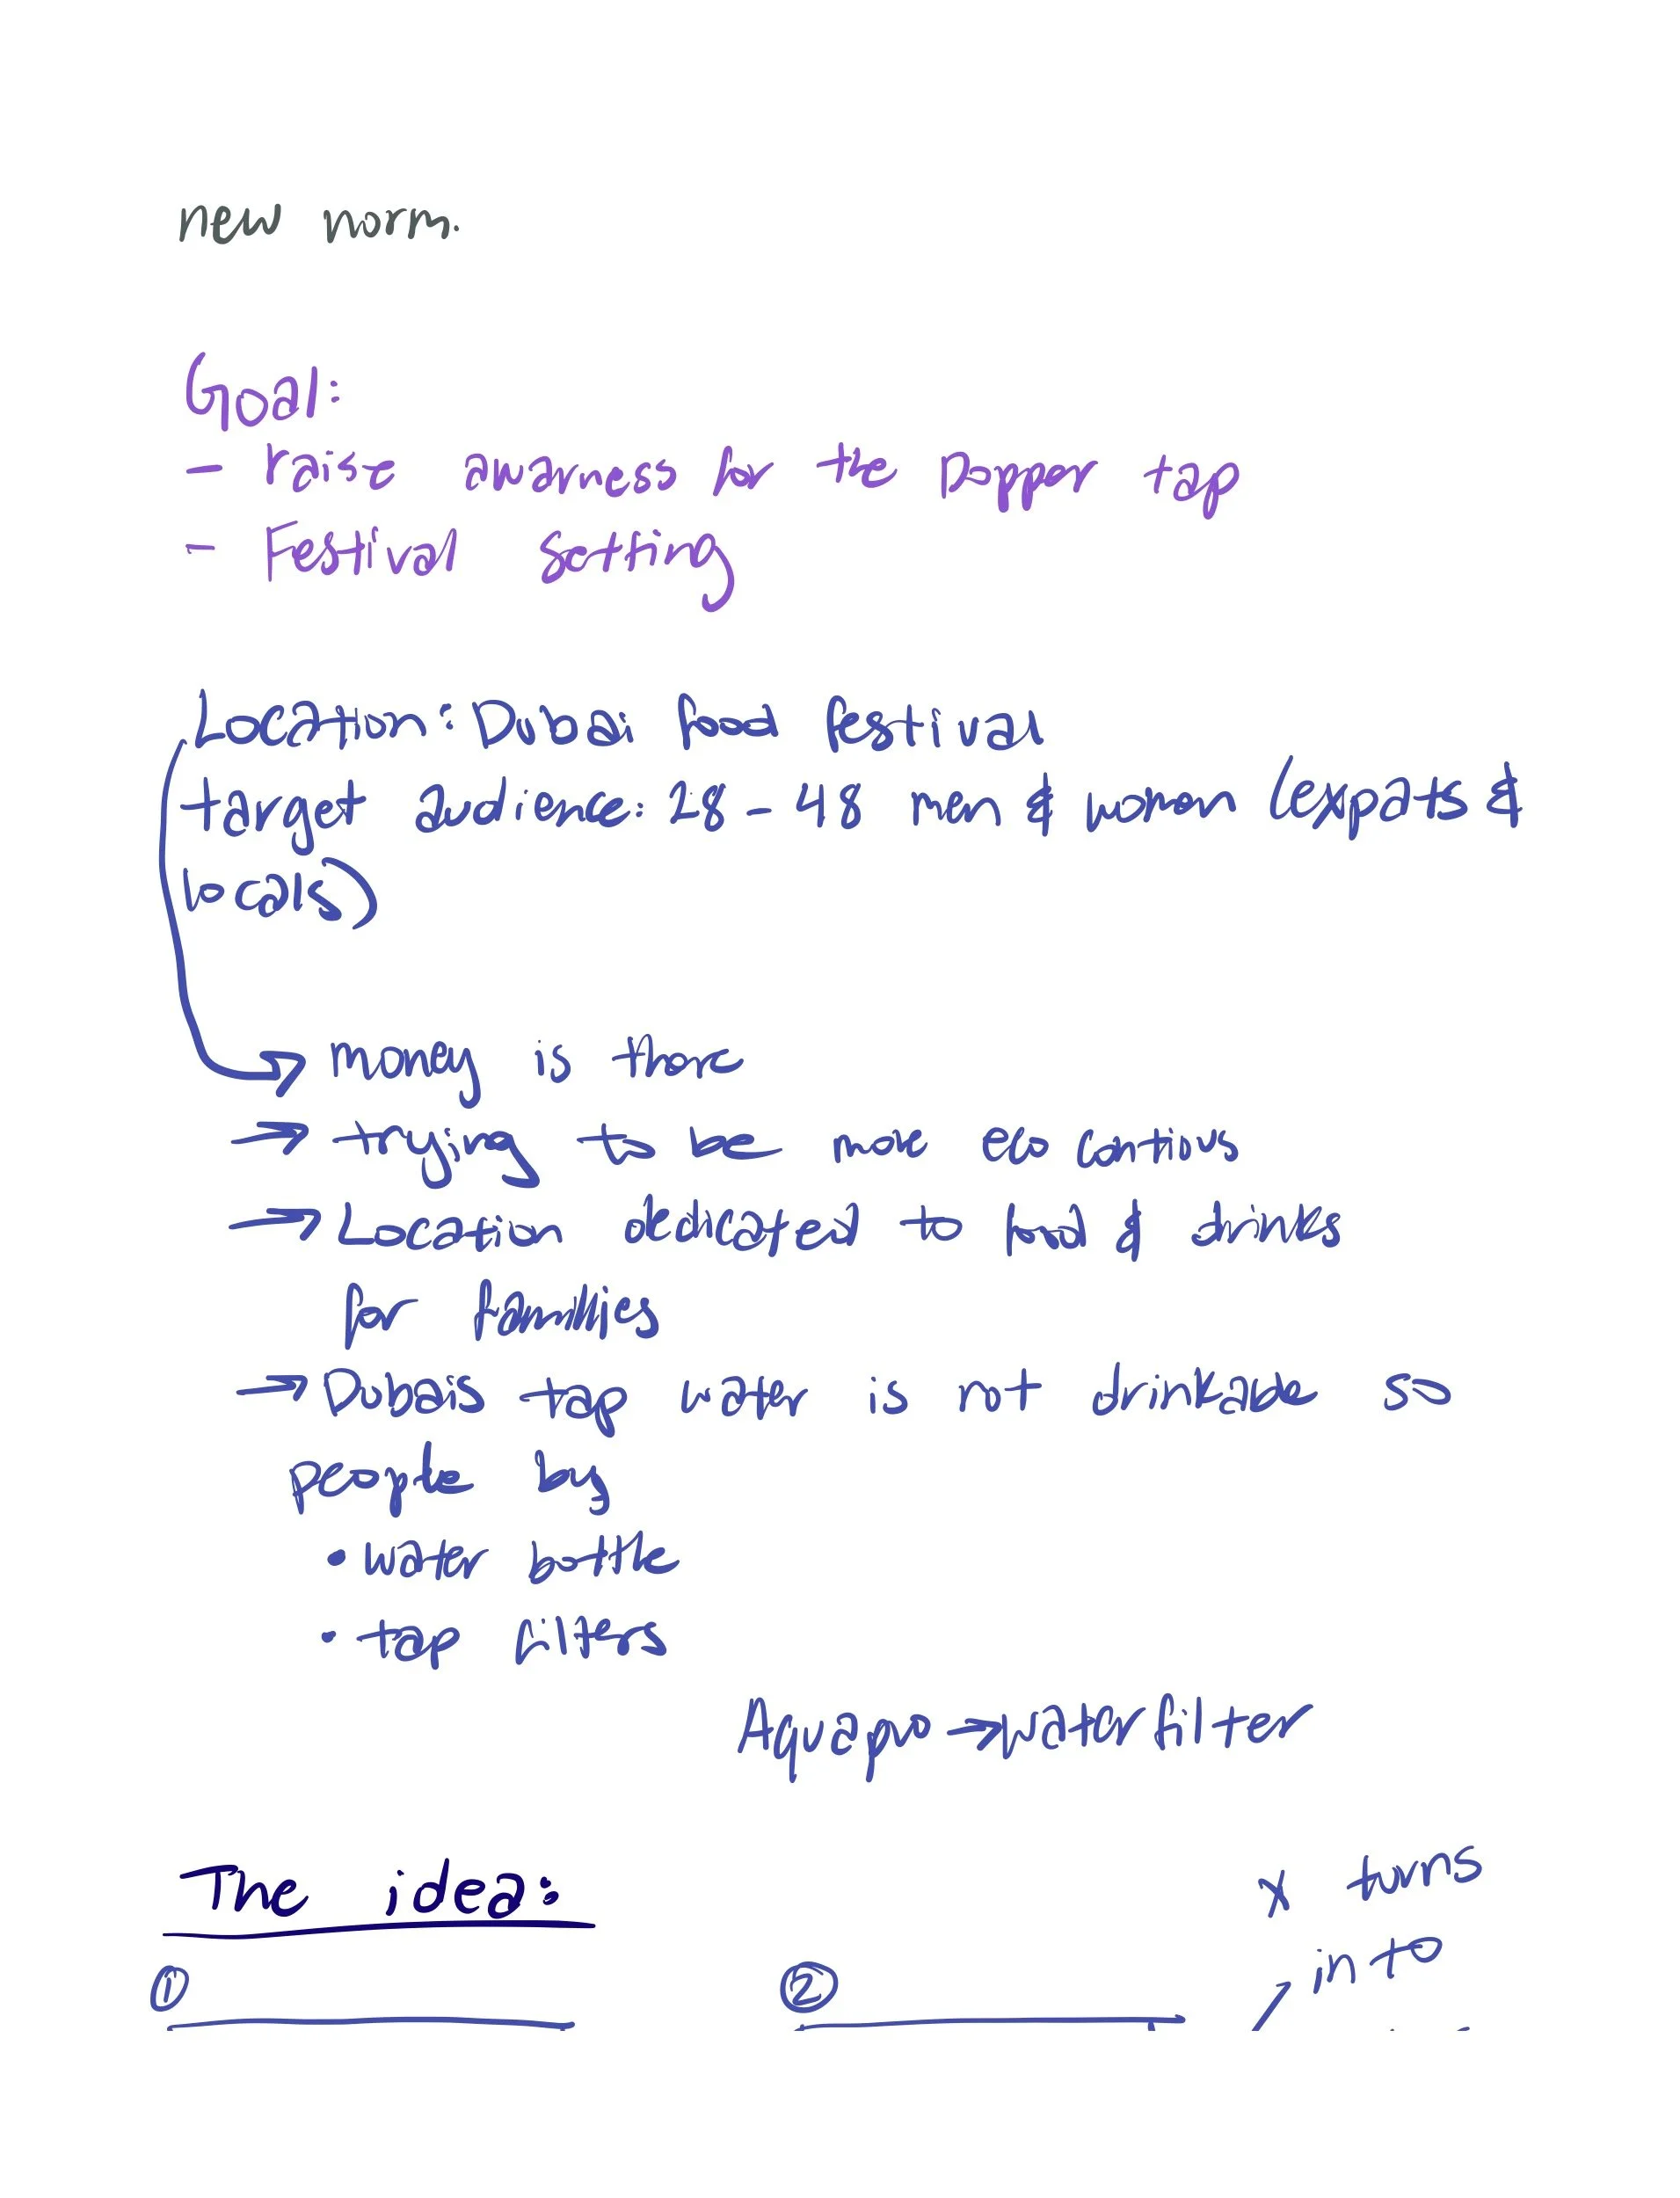 new norm.
Goal:
- raise awarness for the Dopper tap
- Festival setting
Location: Dubai food festival
target audience: 28-48 men & women (expats &
locals)
→ money is there
→ trying to be more eco
→ Location dedicated to food & drinks
for families
→ Dubais tap water is not drinkable so
people buy
• water bottle
• tap filters
Aquapro → water filter
The idea:
x turns
in to
① ②